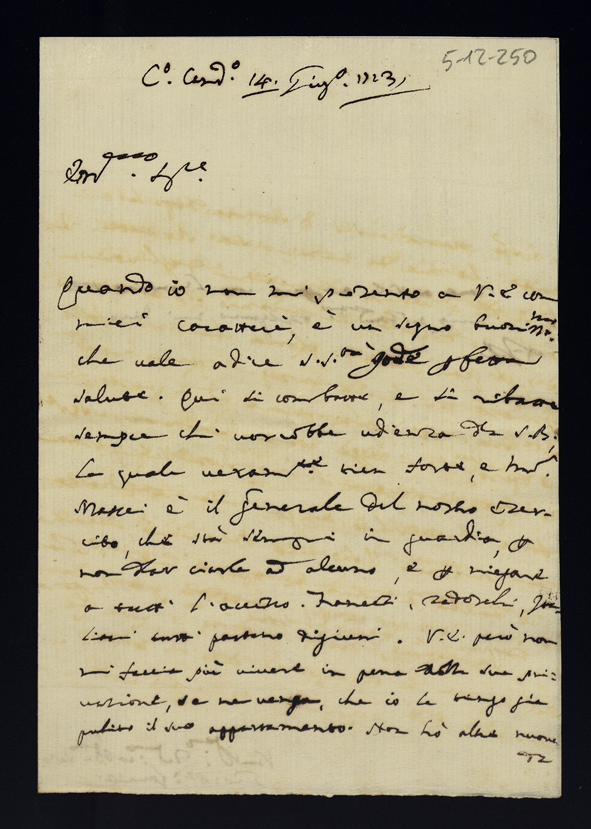 5-12-250
C.º Cand.º 14. Giug.º 1723,
Quando io non mi presento a V. E. con
miei caratteri, è un segno buoniss.mo
che vale a dire S. S.tà gode perfetta
salute. Qui si combatte, e si ribatte
sempre chi vorrebbe udienza da S. B.,
la quale veram.te tien forte, e
Maffei è il Generale del nostro Eser-
cito, che stà sempre in guardia, p
non dar ciarle ad alcuno, e p niegare
a tutti l'accesso.
tutti partono digiuni. V. E. però non
mi faccia più vivere in pena della sua pri-
vazione, se ne venga, che io le tengo già
pulito il suo appartamento. Non hò altre nuove